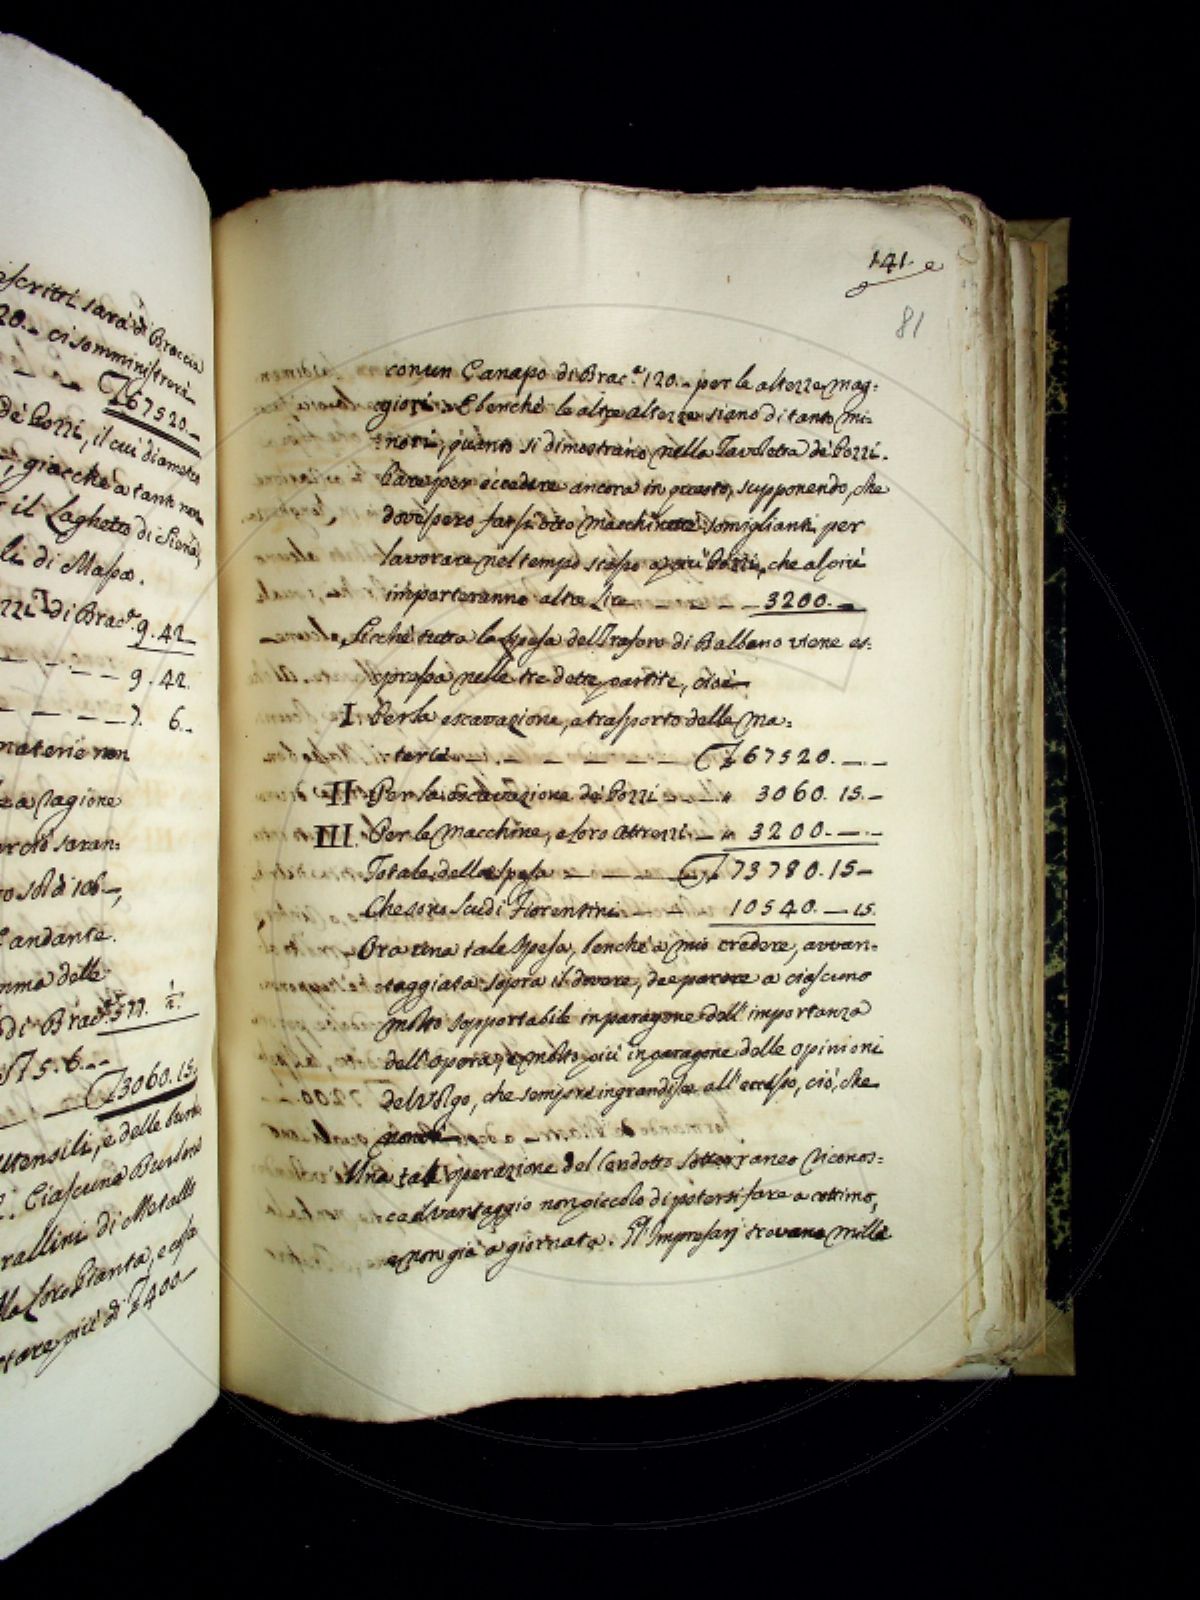 escritti sarà di Braccia
20.– ci somministrerà
67520.–
de' Pozzi, il cui diametro
giacchè a tante
il Laghetto di Siena,
li di Massa.
di Brac.ª 9.42
9.42.
7. 6.–
materie non
a ragione
ciò saran:
soldi 106–,
andante.
mma delle
di Brac.ª 577. ½.
75.6.–
3060.15.
utensili, e delle
Ciascuna Burbera
rallini di Metallo
la loro Pianta, e cassa
tare più di 400–
141.
81
con un Canapo di Brac.ª 120.– per le altezze mag:
giori. E benchè le altre altezze siano di tanto mi:
nori, quanto si dimostrano nella Tavoletta de' Pozzi.
Pare per eccedere ancora in questo, supponendo, che
dovessero farsi otto macchine somiglianti per
lavorare nel tempo stesso a più Pozzi, che al più
importeranno altre Lire — — — 3200.–
Sicchè tutta la spesa del Trasforo di Balbano viene es:
pressa nelle tre dette partite, cioè
I Per la escavazione, e trasporto delle ma:
terie — — — — — 67520. — –
II Per la escavazione de' Pozzi — — „ 3060. 15.–
III. Per le Macchine, e loro Attrezzi — „ 3200. — –
Totale della spesa — — — 73780.15–
Che sono Scudi Fiorentini — — 10540. — 15.
Ora una tale spesa, benchè a mio credere, avvan:
taggiata sopra il dovere, dee parere a ciascuno
molto sopportabile in paragone dell'importanza
dell'opera, e molto più in paragone delle opinioni
del volgo, che sempre ingrandisce all'eccesso, ciò, che
Una tale operazione del Condotto sotterraneo riconos:
ce il vantaggio non piccolo di potersi fare a cottimo,
e non già a giornata. Gl'Impresarj trovano mille